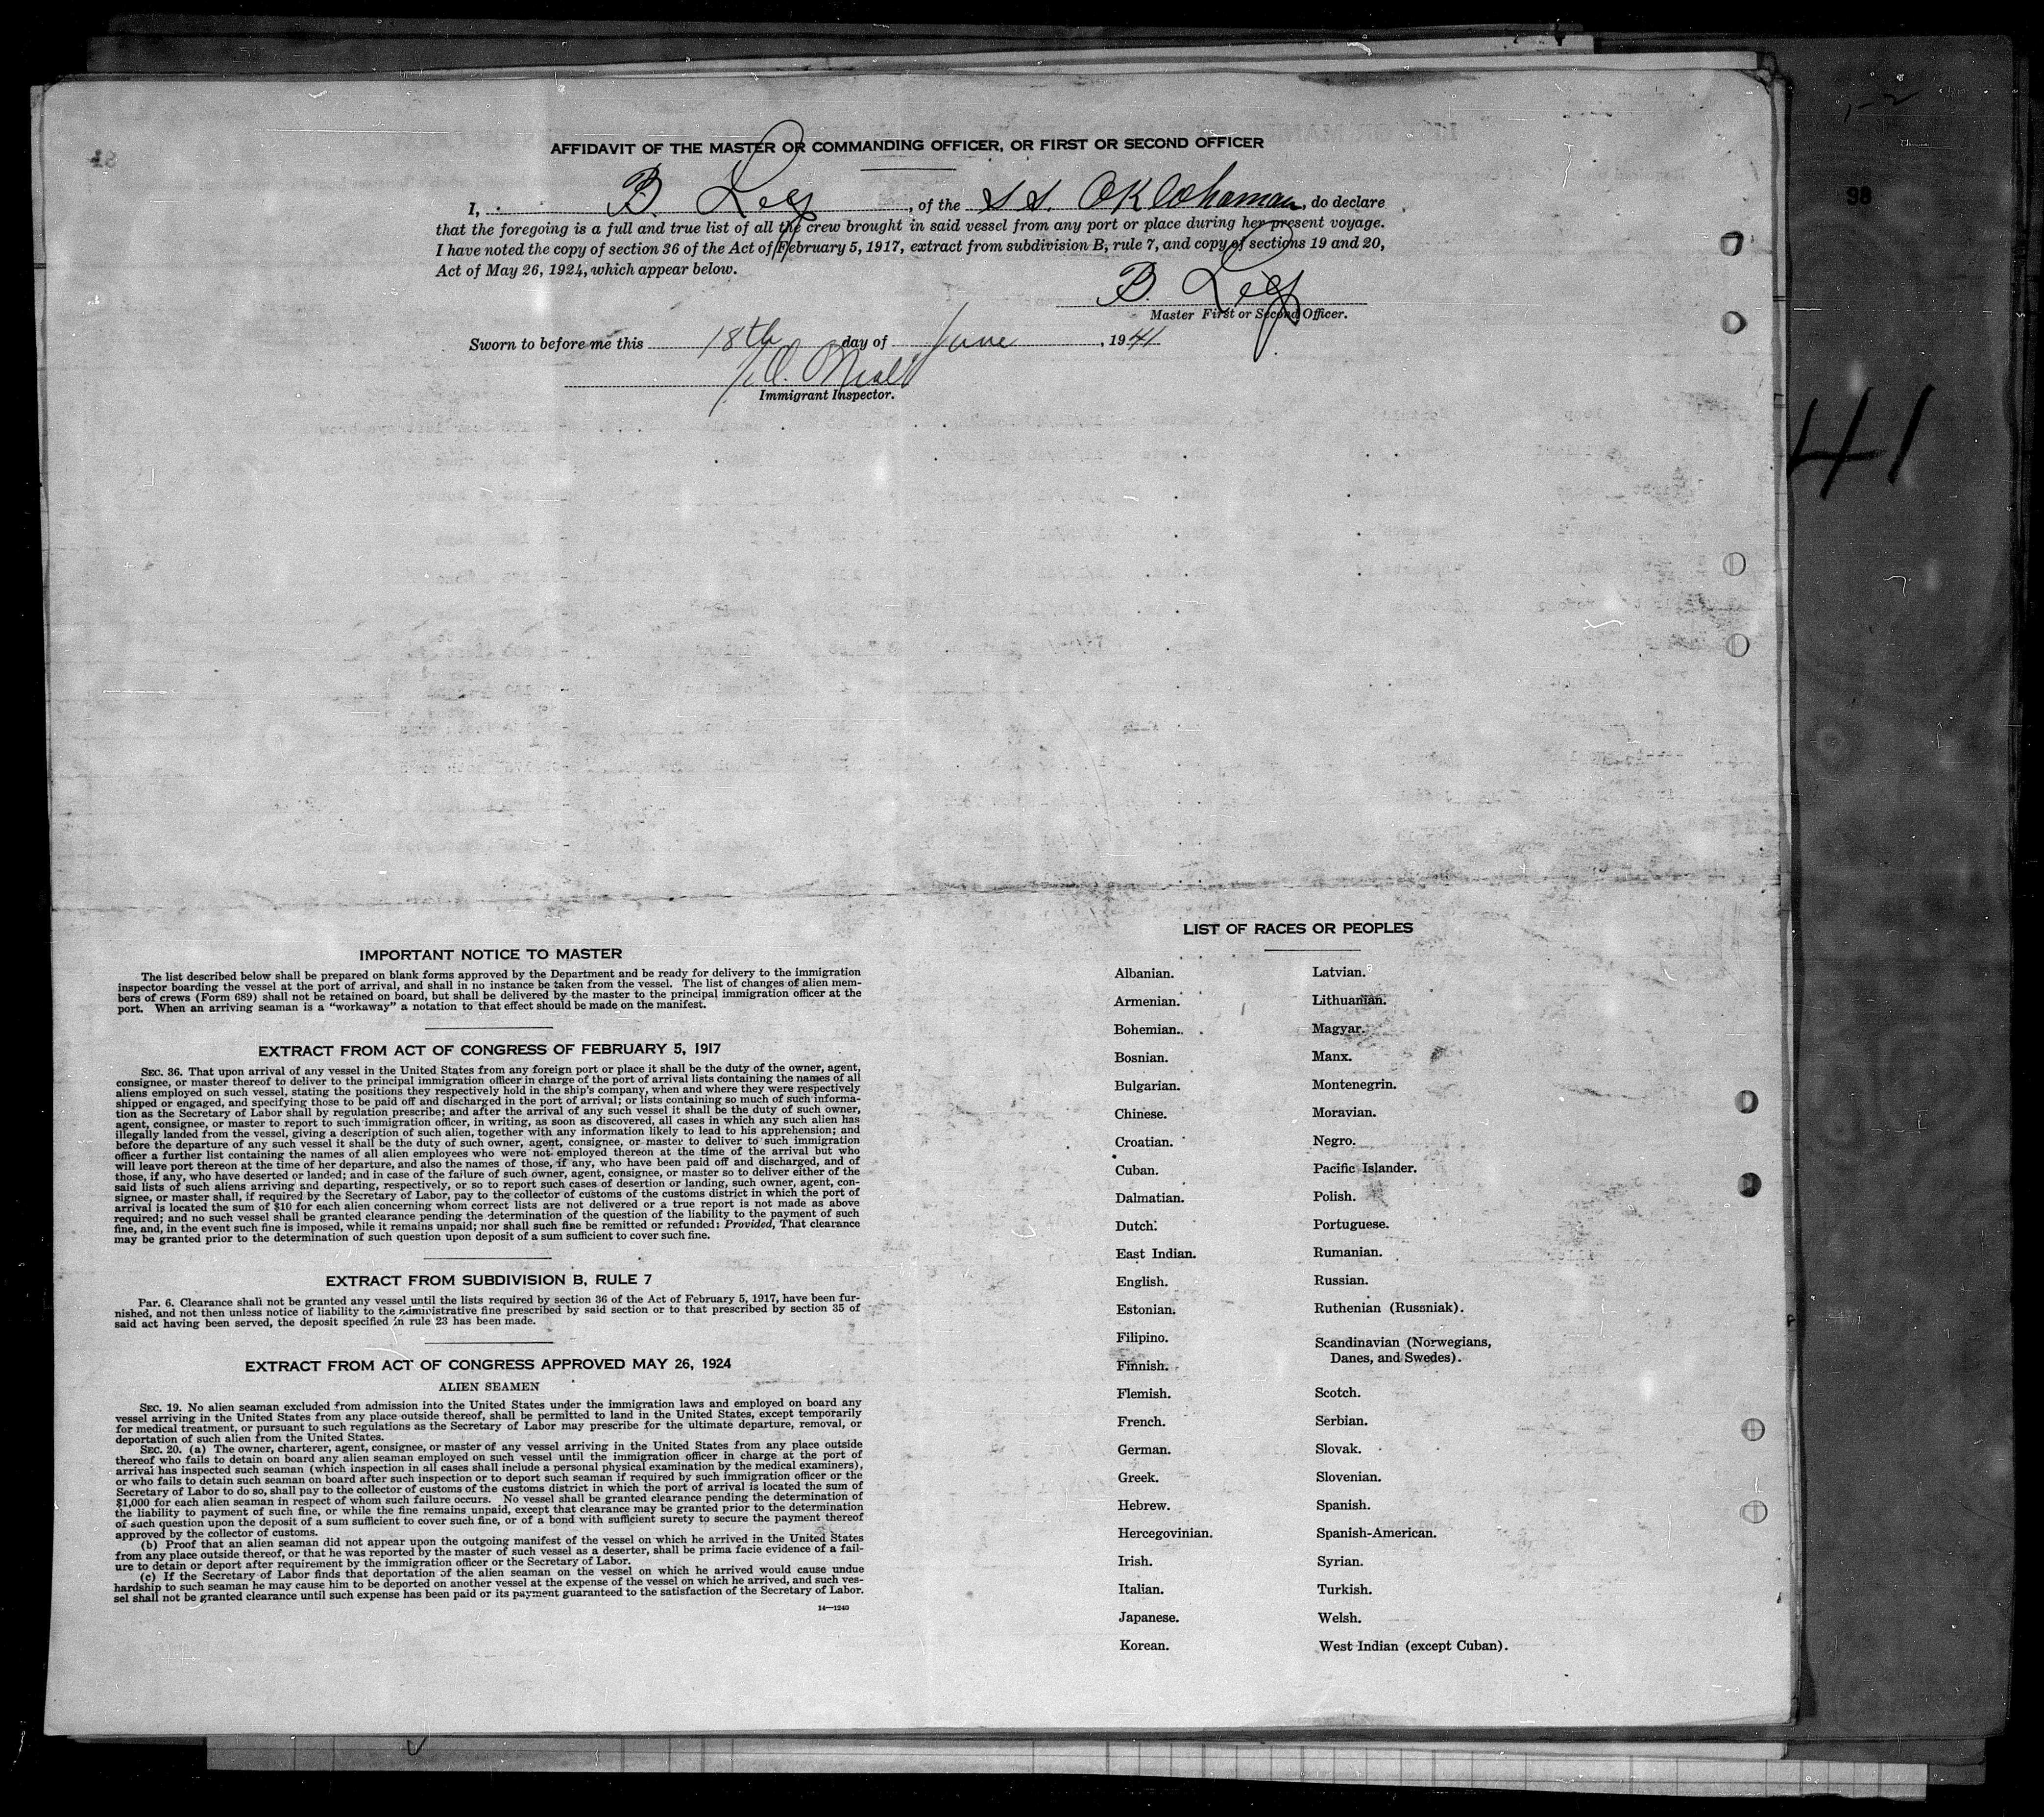 AFFIDAVIT OF THE MASTER OR COMMANDING OFFICER, OR FIRST OR SECOND OFFICER
I, B. Leg, of the S S. OKlahoman, do declare
that the foregoing is a full and true list of all the crew brought in said vessel from any port or place during her present voyage.
I have noted the copy of section 36 of the Act of February 5, 1917, extract from subdivision B, rule 7, and copy of sections 19 and 20,
Act of May 26, 1924, which appear below.
B. Leg
Master First or Second Officer.
Sworn to before me this 18th day of June, 1941
Immigrant Inspector.
98
41
IMPORTANT NOTICE TO MASTER
The list described below shall be prepared on blank forms approved by the Department and be ready for delivery to the immigration
inspector boarding the vessel at the port of arrival, and shall in no instance be taken from the vessel. The list of changes of alien mem-
bers of crews (Form 689) shall not be retained on board, but shall be delivered by the master to the principal immigration officer at the
port. When an arriving seaman is a "workaway" a notation to that effect should be made on the manifest.
EXTRACT FROM ACT OF CONGRESS OF FEBRUARY 5, 1917
SEC. 36. That upon arrival of any vessel in the United States from any foreign port or place it shall be the duty of the owner, agent,
consignee, or master thereof to deliver to the principal immigration officer in charge of the port of arrival lists containing the names of all
aliens employed on such vessel, stating the positions they respectively hold in the ship's company, when and where they were respectively
shipped or engaged, and specifying those to be paid off and discharged in the port of arrival; or lists containing so much of such informa-
tion as the Secretary of Labor shall by regulation prescribe; and after the arrival of any such vessel it shall be the duty of such owner,
agent, consignee, or master to report to such immigration officer, in writing, as soon as discovered, all cases in which any such alien has
illegally landed from the vessel, giving a description of such alien, together with any information likely to lead to his apprehension; and
before the departure of any such vessel it shall be the duty of such owner, agent, consignee, or master to deliver to such immigration
officer a further list containing the names of all alien employees who were not employed thereon at the time of the arrival but who
will leave port thereon at the time of her departure, and also the names of those, if any, who have been paid off and discharged, and of
those, if any, who have deserted or landed; and in case of the failure of such owner, agent, consignee, or master so to deliver either of the
said lists of such aliens arriving and departing, respectively, or so to report such cases of desertion or landing, such owner, agent, con-
signee, or master shall, if required by the Secretary of Labor, pay to the collector of customs of the customs district in which the port of
arrival is located the sum of $10 for each alien concerning whom correct lists are not delivered or a true report is not made as above
required; and no such vessel shall be granted clearance pending the determination of the question of the liability to the payment of such
fine, and, in the event such fine is imposed, while it remains unpaid; nor shall such fine be remitted or refunded: Provided, That clearance
may be granted prior to the determination of such question upon deposit of a sum sufficient to cover such fine.
EXTRACT FROM SUBDIVISION B, RULE 7
Par. 6. Clearance shall not be granted any vessel until the lists required by section 36 of the Act of February 5, 1917, have been fur-
nished, and not then unless notice of liability to the administrative fine prescribed by said section or to that prescribed by section 35 of
said act having been served, the deposit specified in rule 23 has been made.
EXTRACT FROM ACT OF CONGRESS APPROVED MAY 26, 1924
ALIEN SEAMEN
SEC. 19. No alien seaman excluded from admission into the United States under the immigration laws and employed on board any
vessel arriving in the United States from any place outside thereof, shall be permitted to land in the United States, except temporarily
for medical treatment, or pursuant to such regulations as the Secretary of Labor may prescribe for the ultimate departure, removal, or
deportation of such alien from the United States.
SEC. 20. (a) The owner, charterer, agent, consignee, or master of any vessel arriving in the United States from any place outside
thereof who fails to detain on board any alien seaman employed on such vessel until the immigration officer in charge at the port of
arrival has inspected such seaman (which inspection in all cases shall include a personal physical examination by the medical examiners),
or who fails to detain such seaman on board after such inspection or to deport such seaman if required by such immigration officer or the
Secretary of Labor to do so, shall pay to the collector of customs of the customs district in which the port of arrival is located the sum of
$1,000 for each alien seaman in respect of whom such failure occurs. No vessel shall be granted clearance pending the determination of
the liability to payment of such fine, or while the fine remains unpaid, except that clearance may be granted prior to the determination
of such question upon the deposit of a sum sufficient to cover such fine, or of a bond with sufficient surety to secure the payment thereof
approved by the collector of customs.
(b) Proof that an alien seaman did not appear upon the outgoing manifest of the vessel on which he arrived in the United States
from any place outside thereof, or that he was reported by the master of such vessel as a deserter, shall be prima facie evidence of a fail-
ure to detain or deport after requirement by the immigration officer or the Secretary of Labor.
(c) If the Secretary of Labor finds that deportation of the alien seaman on the vessel on which he arrived would cause undue
hardship to such seaman he may cause him to be deported on another vessel at the expense of the vessel on which he arrived, and such ves-
sel shall not be granted clearance until such expense has been paid or its payment guaranteed to the satisfaction of the Secretary of Labor.
14—1240
LIST OF RACES OR PEOPLES
Albanian.
Armenian.
Bohemian.
Bosnian.
Bulgarian.
Chinese.
Croatian.
Cuban.
Dalmatian.
Dutch.
East Indian.
English.
Estonian.
Filipino.
Finnish.
Flemish.
French.
German.
Greek.
Hebrew.
Hercegovinian.
Irish.
Italian.
Japanese.
Korean.
Latvian.
Lithuanian.
Magyar.
Manx.
Montenegrin.
Moravian.
Negro.
Pacific Islander.
Polish.
Portuguese.
Rumanian.
Russian.
Ruthenian (Russniak).
Scandinavian (Norwegians,
Danes, and Swedes).
Scotch.
Serbian.
Slovak.
Slovenian.
Spanish.
Spanish-American.
Syrian.
Turkish.
Welsh.
West Indian (except Cuban).